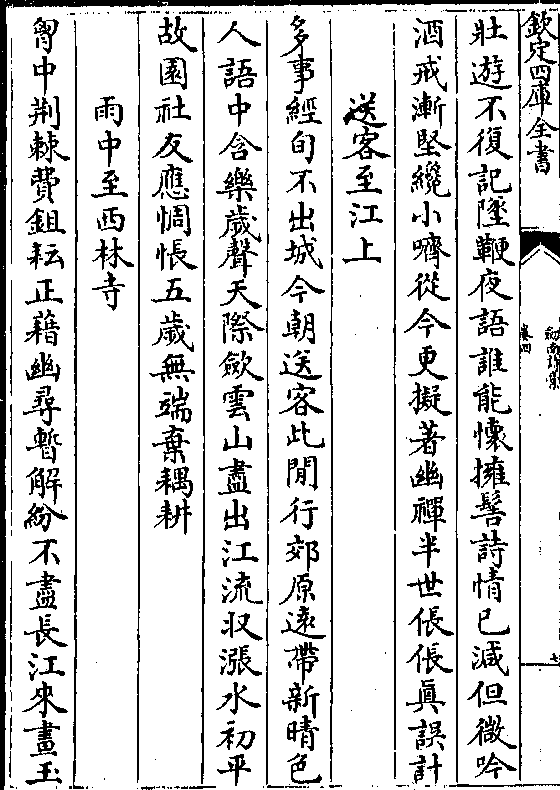 欽定四庫全書
劍南詩稾
卷四
壯遊不復記墜鞭夜語誰能懷擁髻詩情已減但微吟
酒戒漸堅纔小嚌從今更擬著幽禪半世倀倀真誤計
送客至江上
多事經旬不出城今朝送客此閒行郊原遠帶新晴色
人語中含樂歲聲天際斂雲山盡出江流收漲水初平
故園社友應惆悵五歲無端棄耦耕
雨中至西林寺
胷中荆棘費鉏耘正藉幽尋暫解紛不盡長江來畫玉